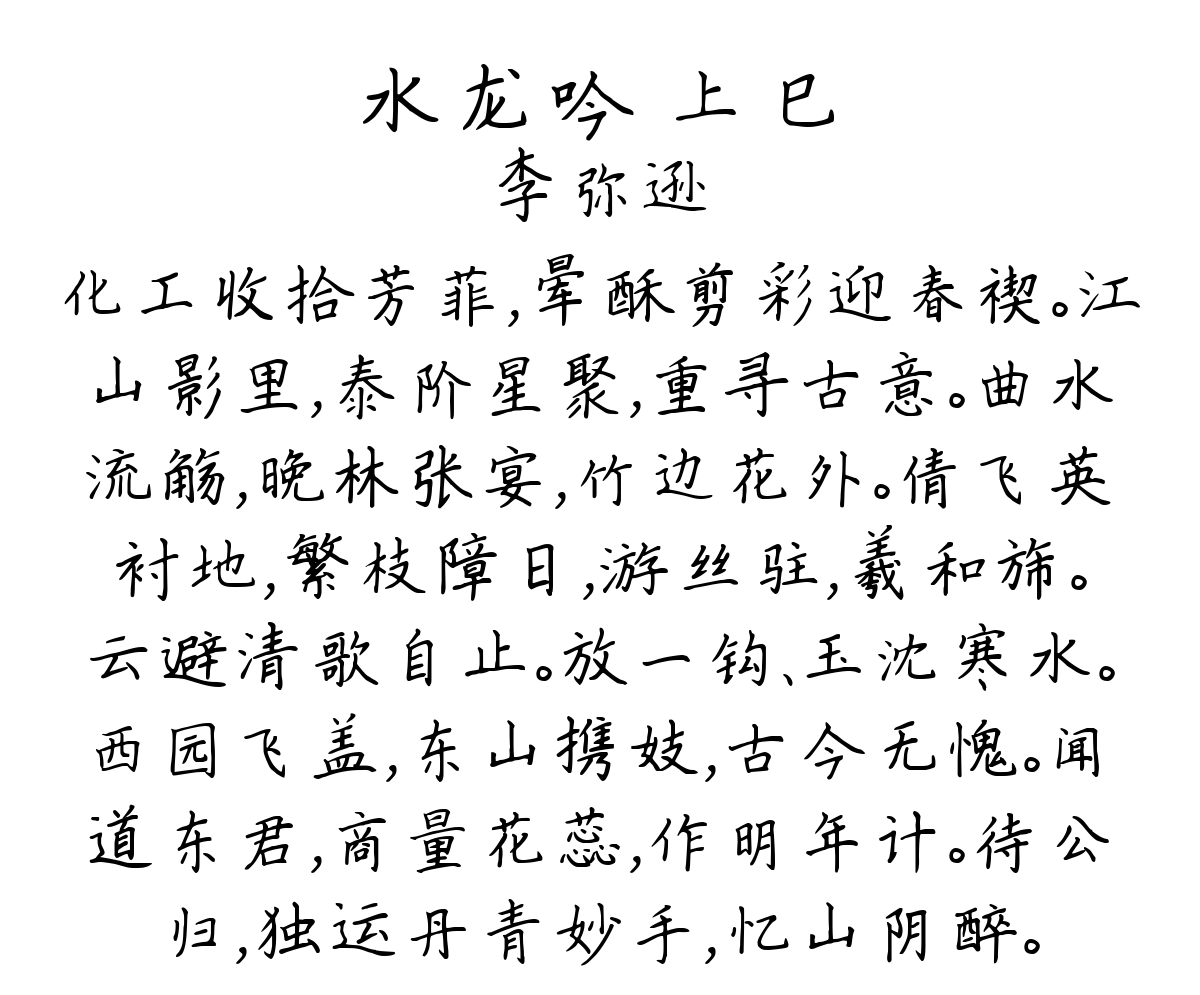 水龙吟 上巳
李弥逊
化工收拾芳菲,晕酥剪彩迎春禊。江
山影里,泰阶星聚,重寻古意。曲水
流觞,晚林张宴,竹边花外。倩飞英
衬地,繁枝障日,游丝驻,羲和旆。
云避清歌自止。放一钩、玉沈寒水。
西园飞盖,东山携妓,古今无愧。闻
道东君,商量花蕊,作明年计。待公
归,独运丹青妙手,忆山阴醉。